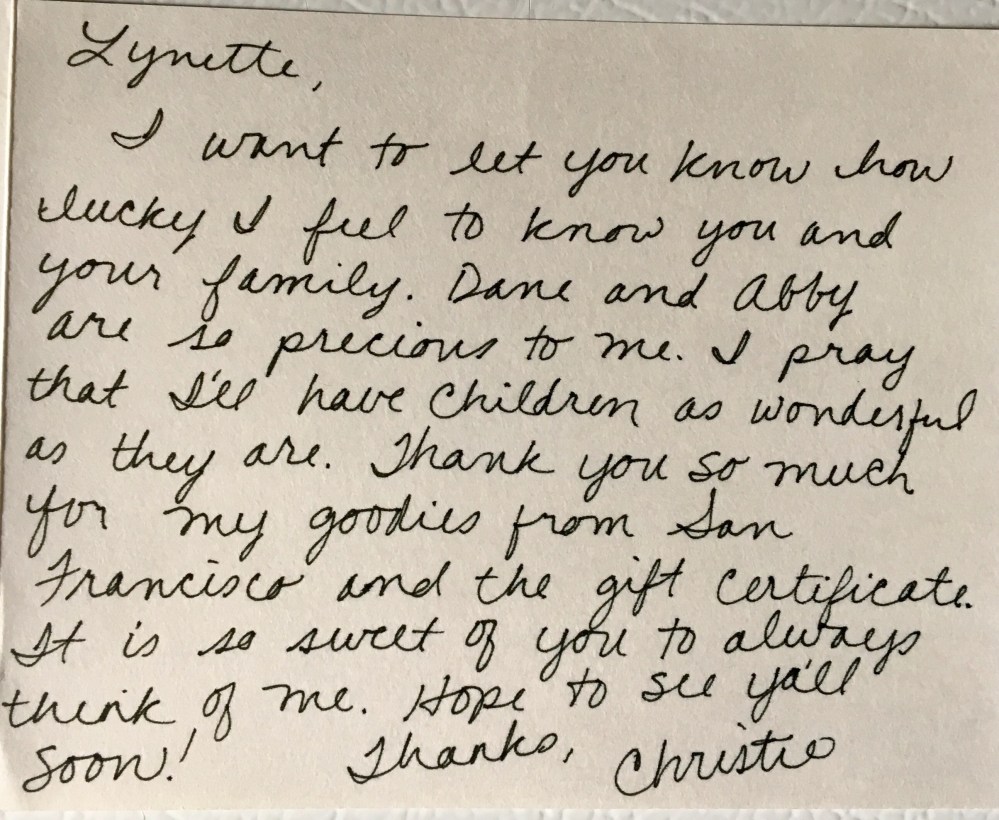 Lynette,
I want to let you know how
lucky I feel to know you and
your family. Dane and Abby
are so precious to me. I pray
that I'll have Children as wonderful
as they are. Thank you so much
for my goodies from San
Francisco and the gift certificate.
It is so sweet of you to always
think of me. Hope to see ya'll
soon! Thanks, Christie